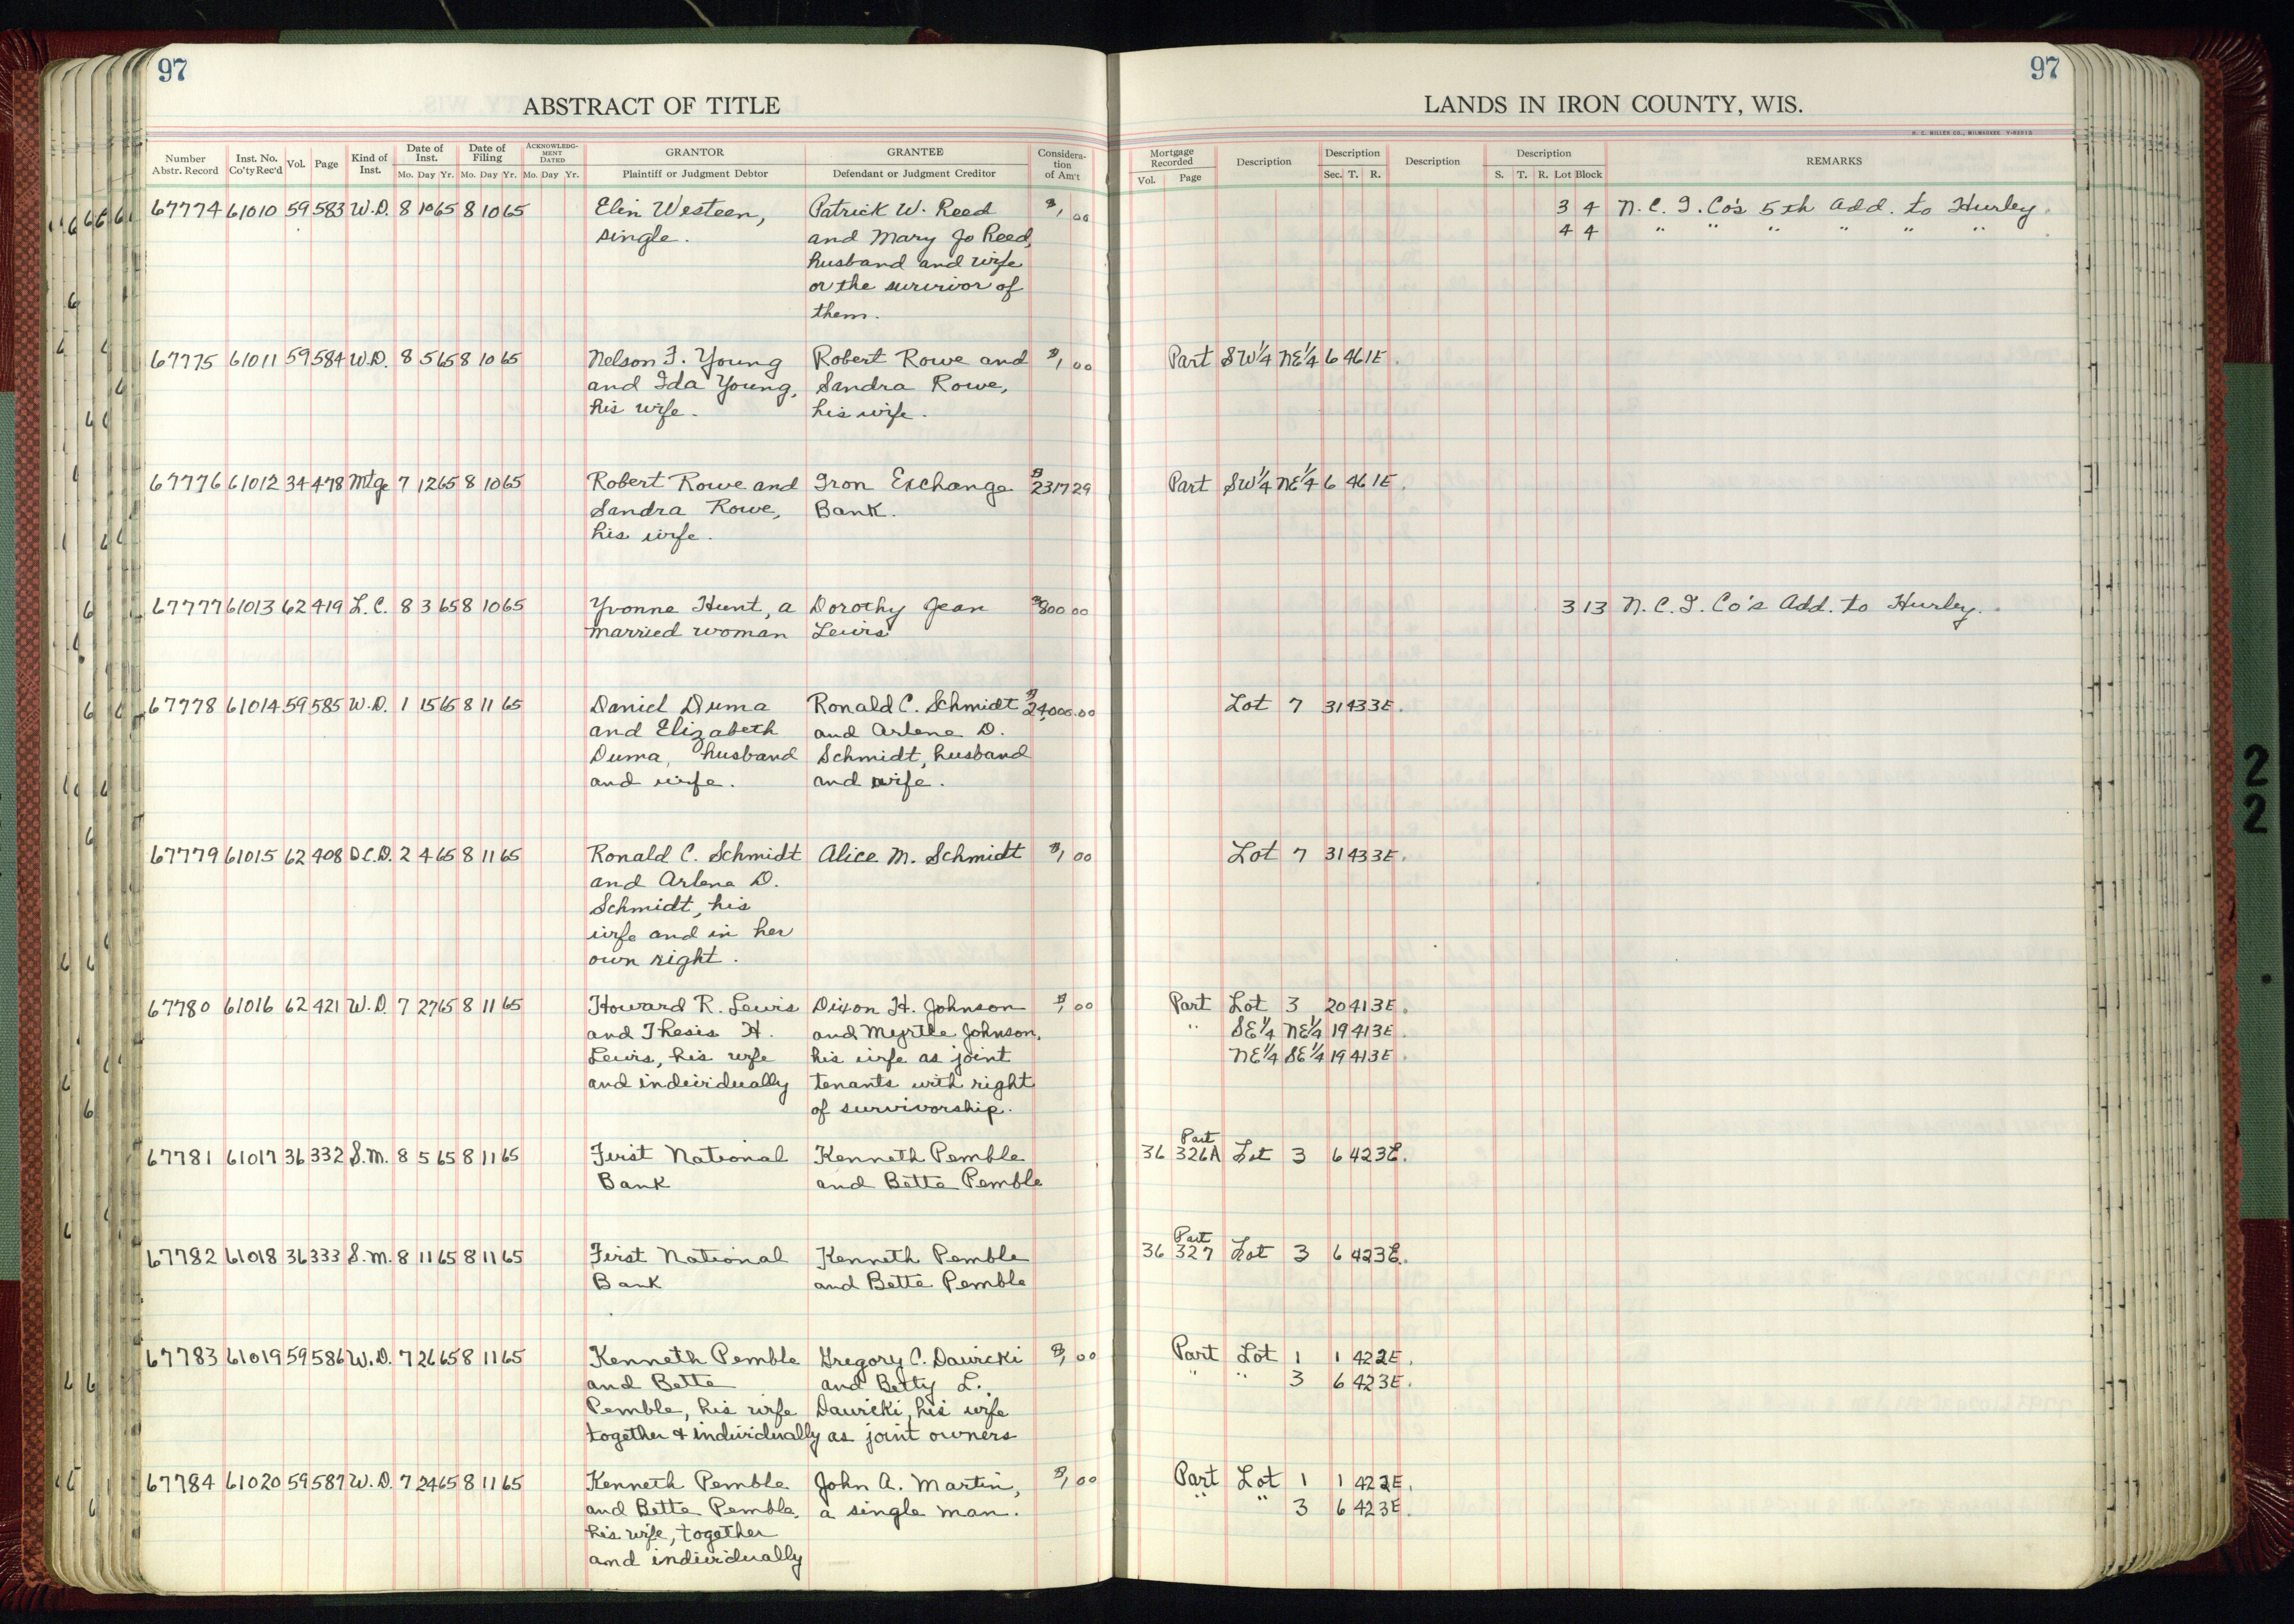 97
ABSTRACT OF TITLE
Number Abstr. Record | Inst. No. Co'ty Rec'd | Vol. | Page | Kind of Inst. | Date of Inst. Mo. Day Yr. | Date of Filing Mo. Day Yr. | ACKNOWLEDGMENT DATED Mo. Day Yr. | GRANTOR Plaintiff or Judgment Debtor | GRANTEE Defendant or Judgment Creditor | Consideration of Am't
67774 61010 59 583 W.D. 8 10 65 8 10 65 Elin Westeen, Patrick W. Reed $1,00
single. and Mary Jo Reed,
husband and wife
or the survivor of
them.
67775 61011 59 584 W.D. 8 5 65 8 10 65 Nelson J. Young Robert Rowe and $1,00
and Ida Young, Sandra Rowe,
his wife. his wife.
67776 61012 34 478 Mtge 7 12 65 8 10 65 Robert Rowe and Iron Exchange $2317 29
Sandra Rowe, Bank.
his wife.
67777 61013 62 419 L.C. 8 3 65 8 10 65 Yvonne Hunt, a Dorothy Jean $800 00
married woman Lewis
67778 61014 59 585 W.D. 1 15 65 8 11 65 Daniel Duma Ronald C. Schmidt $24,000.00
and Elizabeth and Arlene D.
Duma, husband Schmidt, husband
and wife. and wife.
67779 61015 62 408 D.C.D. 2 4 65 8 11 65 Ronald C. Schmidt Alice M. Schmidt $1,00
and Arlene D.
Schmidt, his
wife and in her
own right.
67780 61016 62 421 W.D. 7 27 65 8 11 65 Howard R. Lewis Dixon H. Johnson $1,00
and Thesis H. and Myrtle Johnson,
Lewis, his wife his wife as joint
and individually tenants with right
of survivorship.
67781 61017 36 332 S.M. 8 5 65 8 11 65 First National Kenneth Pemble
Bank and Bette Pemble
67782 61018 36 333 S.M. 8 11 65 8 11 65 First National Kenneth Pemble
Bank and Bette Pemble
67783 61019 59 586 W.D. 7 26 65 8 11 65 Kenneth Pemble Gregory C. Dawicki $1,00
and Bette and Betty L.
Pemble, his wife Dawicki, his wife
together & individually as joint owners
67784 61020 59 587 W.D. 7 24 65 8 11 65 Kenneth Pemble John A. Martin, $1,00
and Bette Pemble, a single man.
his wife, together
and individually
97
LANDS IN IRON COUNTY, WIS.
H. C. MILLER CO., MILWAUKEE
Mortgage Recorded Vol. Page | Description | Description Sec. T. R. | Description | Description S. T. R. Lot Block | REMARKS
3 4 N.C.I. Co's 5th Add. to Hurley.
4 4 " " " " " "
Part SW¼ NE¼ 6 46 1E.
Part SW¼ NE¼ 6 46 1E.
3 13 N.C.I. Co's Add. to Hurley.
Lot 7 31 43 3E.
Lot 7 31 43 3E.
Part Lot 3 20 41 3E.
" SE¼ NE¼ 19 41 3E.
NE¼ SE¼ 19 41 3E.
Part
36 326A Lot 3 6 42 3E.
Part
36 327 Lot 3 6 42 3E.
Part Lot 1 1 42 2E.
" " 3 6 42 3E.
Part Lot 1 1 42 2E.
" " 3 6 42 3E.
2
2